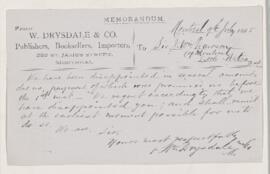 MEMORANDUM.
From
W. DRYSDALE & CO.
Publishers, Booksellers, Importers,
232 ST. JAMES STREET,
MONTREAL.
Montreal 9th July 1885
To Sir
We have been disappointed in several amounts
due us, payment of which was promised us before
the 1st inst. We regret exceedingly that we
have disappointed you; and shall remit
at the earliest moment possible for us to
do so.
We are, Sir,
Yours most respectfully
Wm Drysdale & Co